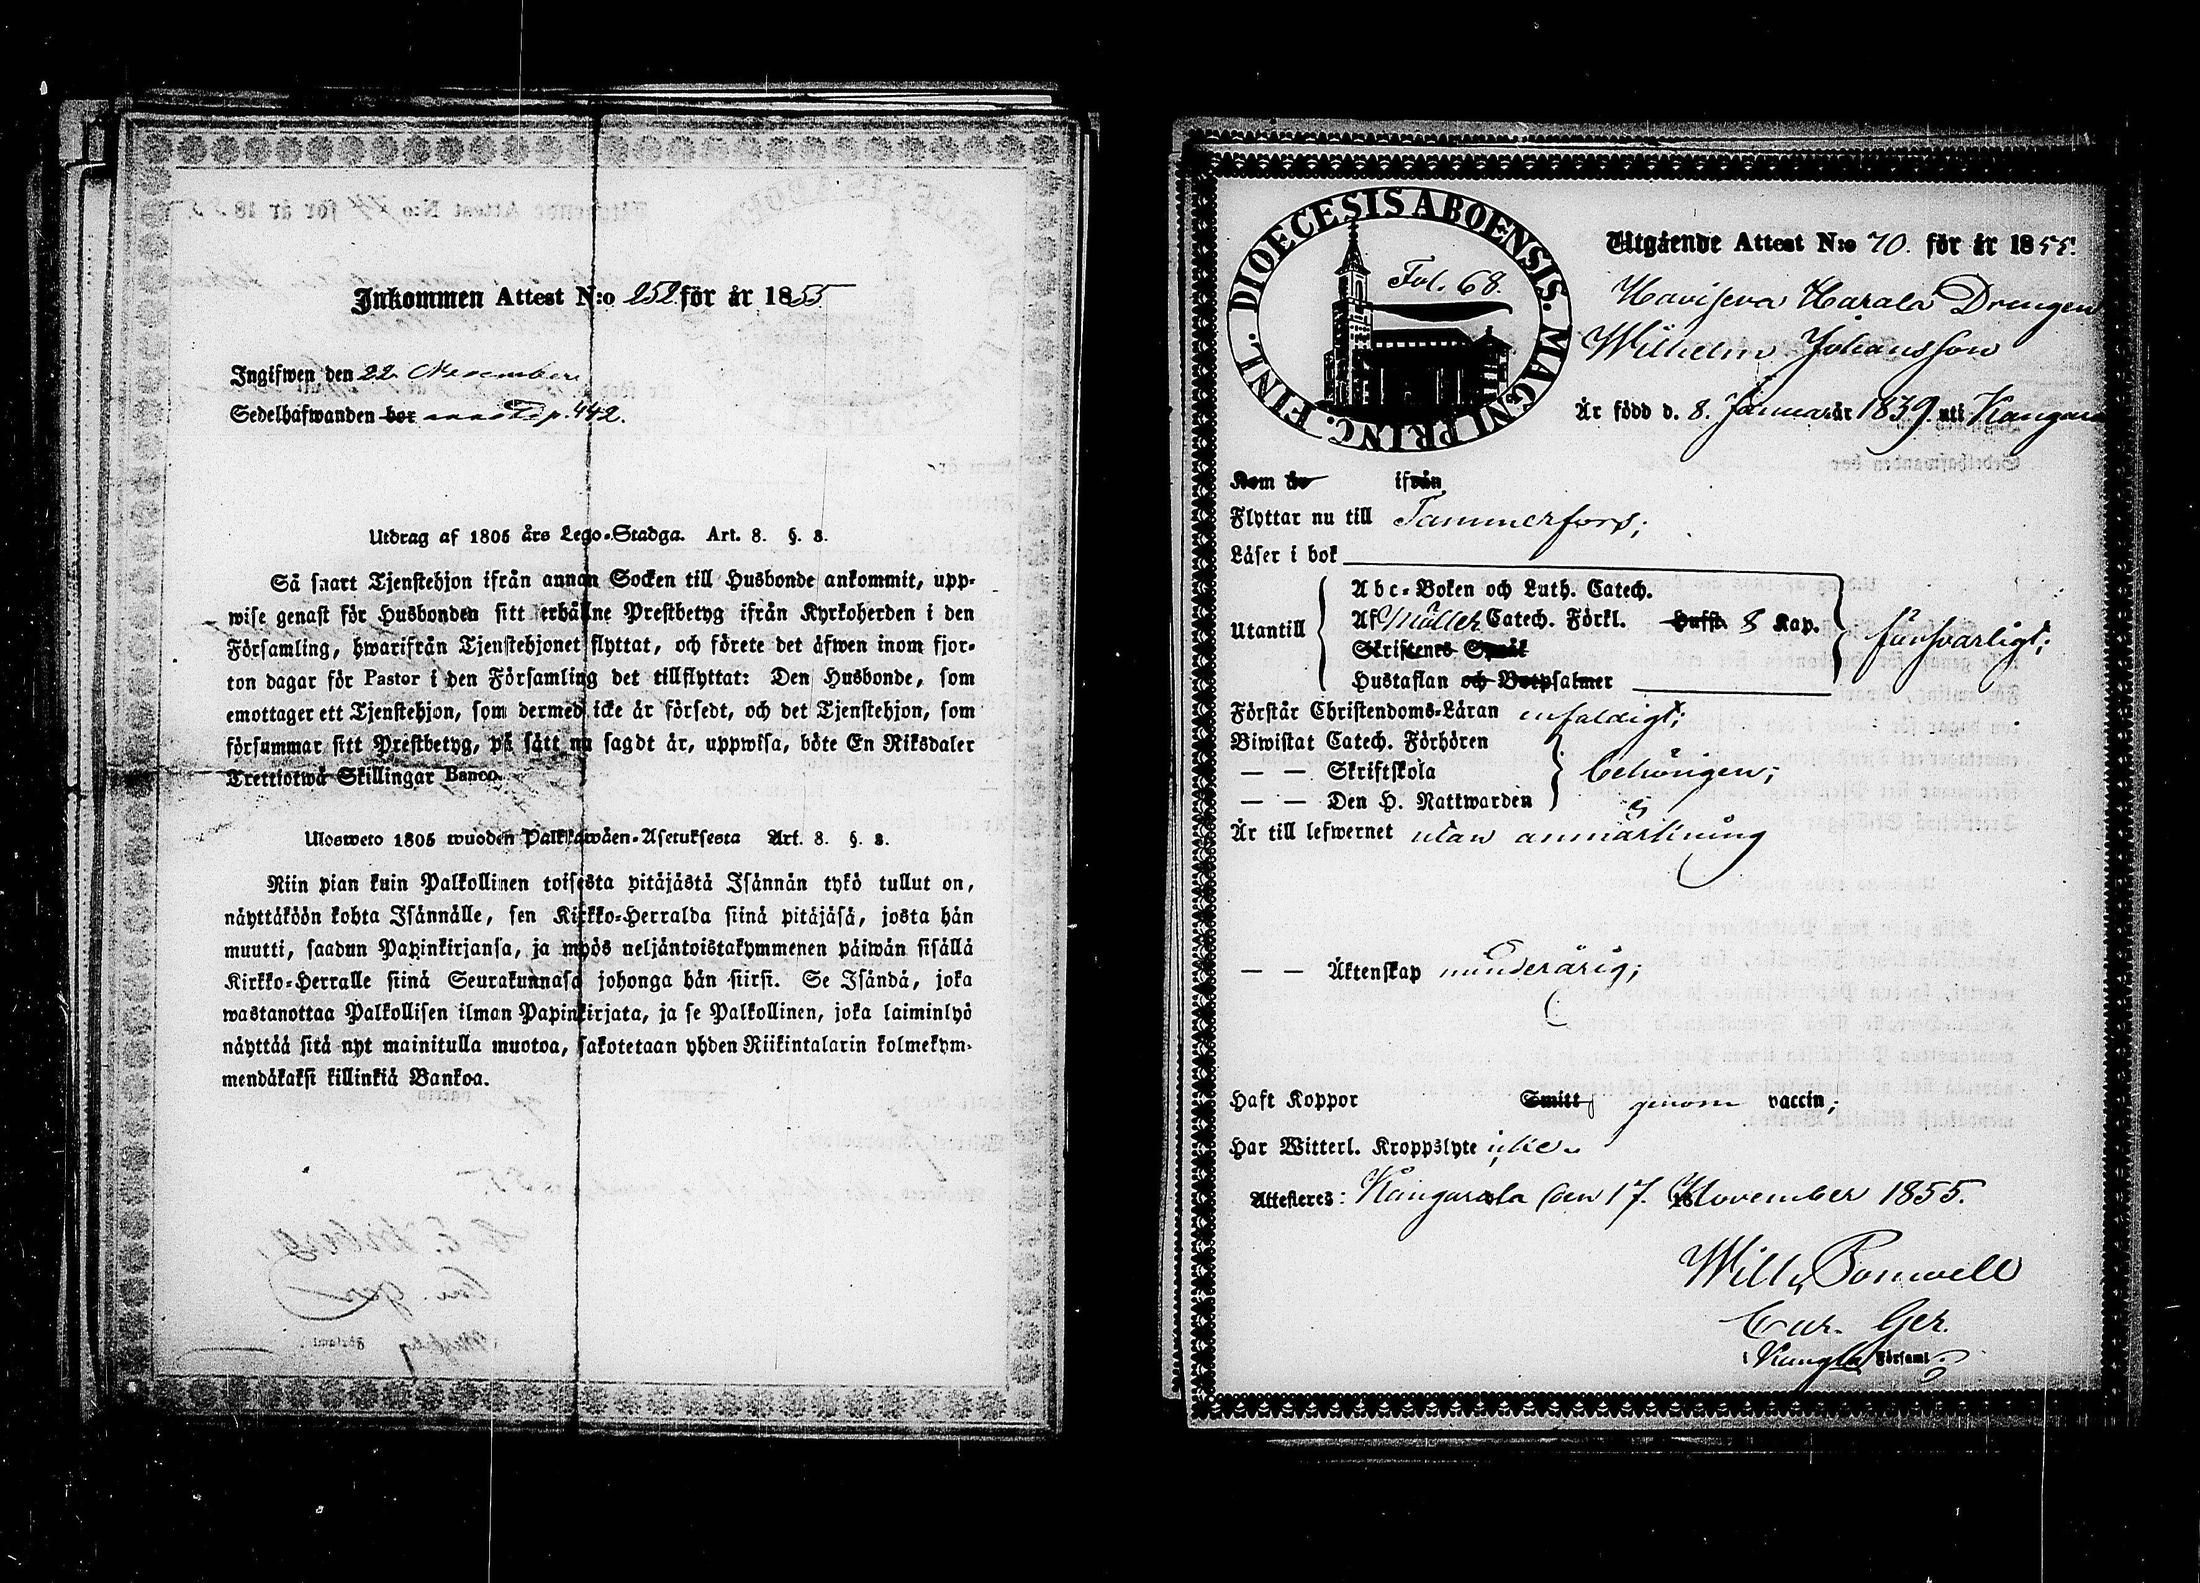 Inkommen Attest N:o 252 för år 1855
Ingifwen den 22 November
Sedelhafwanden bor p. 442.
Utdrag af 1805 års Lego-Stadga. Art. 8. §. 8.
Så snart Tjenstehjon ifrån annan Socken till Husbonde ankommit, upp-
wise genast för Husbonden sitt erhållne Prestbetyg ifrån Kyrkoherden i den
Församling, hwarifrån Tjenstehjonet flyttat, och förete det äfwen inom fjor-
ton dagar för Pastor i den Församling det tillflyttat: Den Husbonde, som
emottager ett Tjenstehjon, som dermed icke är försedt, och det Tjenstehjon, som
försummar sitt Prestbetyg, på sätt nu sagdt är, uppwisa, böte En Riksdaler
Trettiotwå Skillingar Banco.
Ulosweto 1805 wuoden Palkkawäen-Asetuksesta Art. 8. §. 8.
Niin pian kuin Palkollinen toisesta pitäjästä Isännän tykö tullut on,
näyttäköön kohta Isännälle, sen Kirkko-Herralda siinä pitäjäsä, josta hän
muutti, saadun Papinkirjansa, ja myös neljäntoistakymmenen päiwän sisällä
Kirkko-Herralle siinä Seurakunnasa johonga hän siirsi. Se Isändä, joka
wastanottaa Palkollisen ilman Papinkirjata, ja se Palkollinen, joka laiminlyö
näyttää sitä nyt mainitulla muotoa, sakotetaan yhden Riikintalarin kolmekym-
mendäkaksi killinkiä Bankoa.
DIOECESIS ABOENSIS. MAGNI PRINC. FINL.
Fol. 68.
Utgående Attest N:o 70. för år 1855.
Haviseva Harala Drengen
Wilhelm Johansson
Är född d. 8. Januar är 1839. uti Kangasa
Kom år ifrån
Flyttar nu till Tammerfors;
Läser i bok
Utantill
Abc-Boken och Luth. Catech.
Af Möller Catech. Förkl. Hufst. 8 Kap.
Skriftenes Språk
Hustaflan och Botpsalmer
försvarligt;
Förstår Christendoms-Läran enfaldigt;
Biwistat Catech. Förhören
— — Skriftskola
— — Den H. Nattwarden
behörigen;
Är till lefwernet utan anmärkning
— — Äktenskap minderårig;
Haft Koppor Smitt genom vaccin;
Har Witterl. Kroppslyte icke.
Attesteres: Kangasala den 17. 18 November 1855.
Wilh. Bonwell
Cur. Ger.
i Kangla Församl.